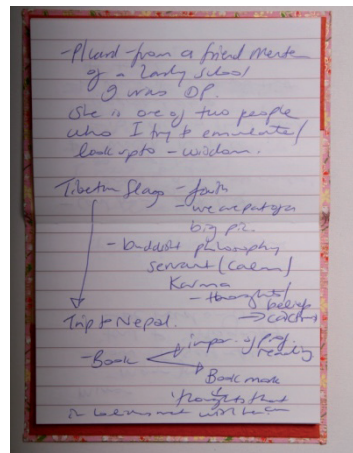 - P/card - from a friend mentor
of a lady school
I was DP.
She is one of two people
who I try to emmulate/
look up to - wisdom.
Tibetan flags - faith
- we are part of a
big pic.
- buddist philosophy
servant (calm)
Karma
- thoughts/
beliefs
→ actions
Trip to Nepal.
- Book
impor. of prof.
reading
Book mark
thoughts that